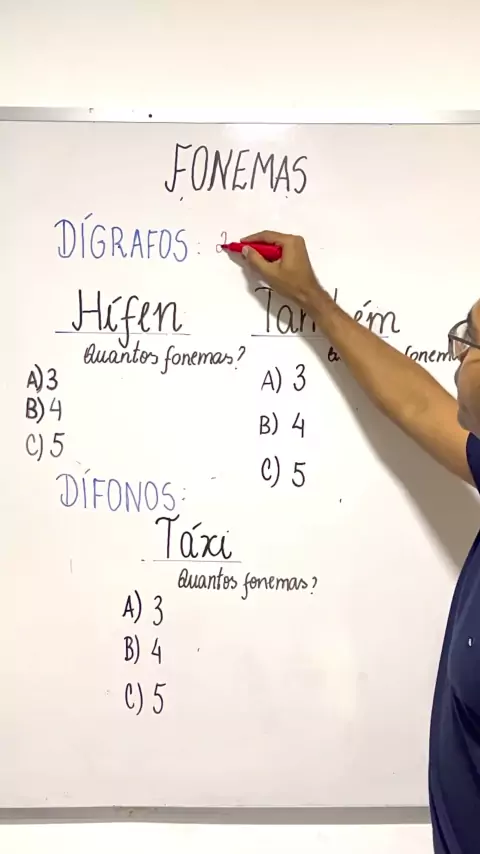 FONEMAS
DÍGRAFOS: 2
Hífen
Quantos fonemas?
A) 3
B) 4
C) 5
Também
A) 3
B) 4
C) 5
DÍFONOS:
Táxi
Quantos fonemas?
A) 3
B) 4
C) 5